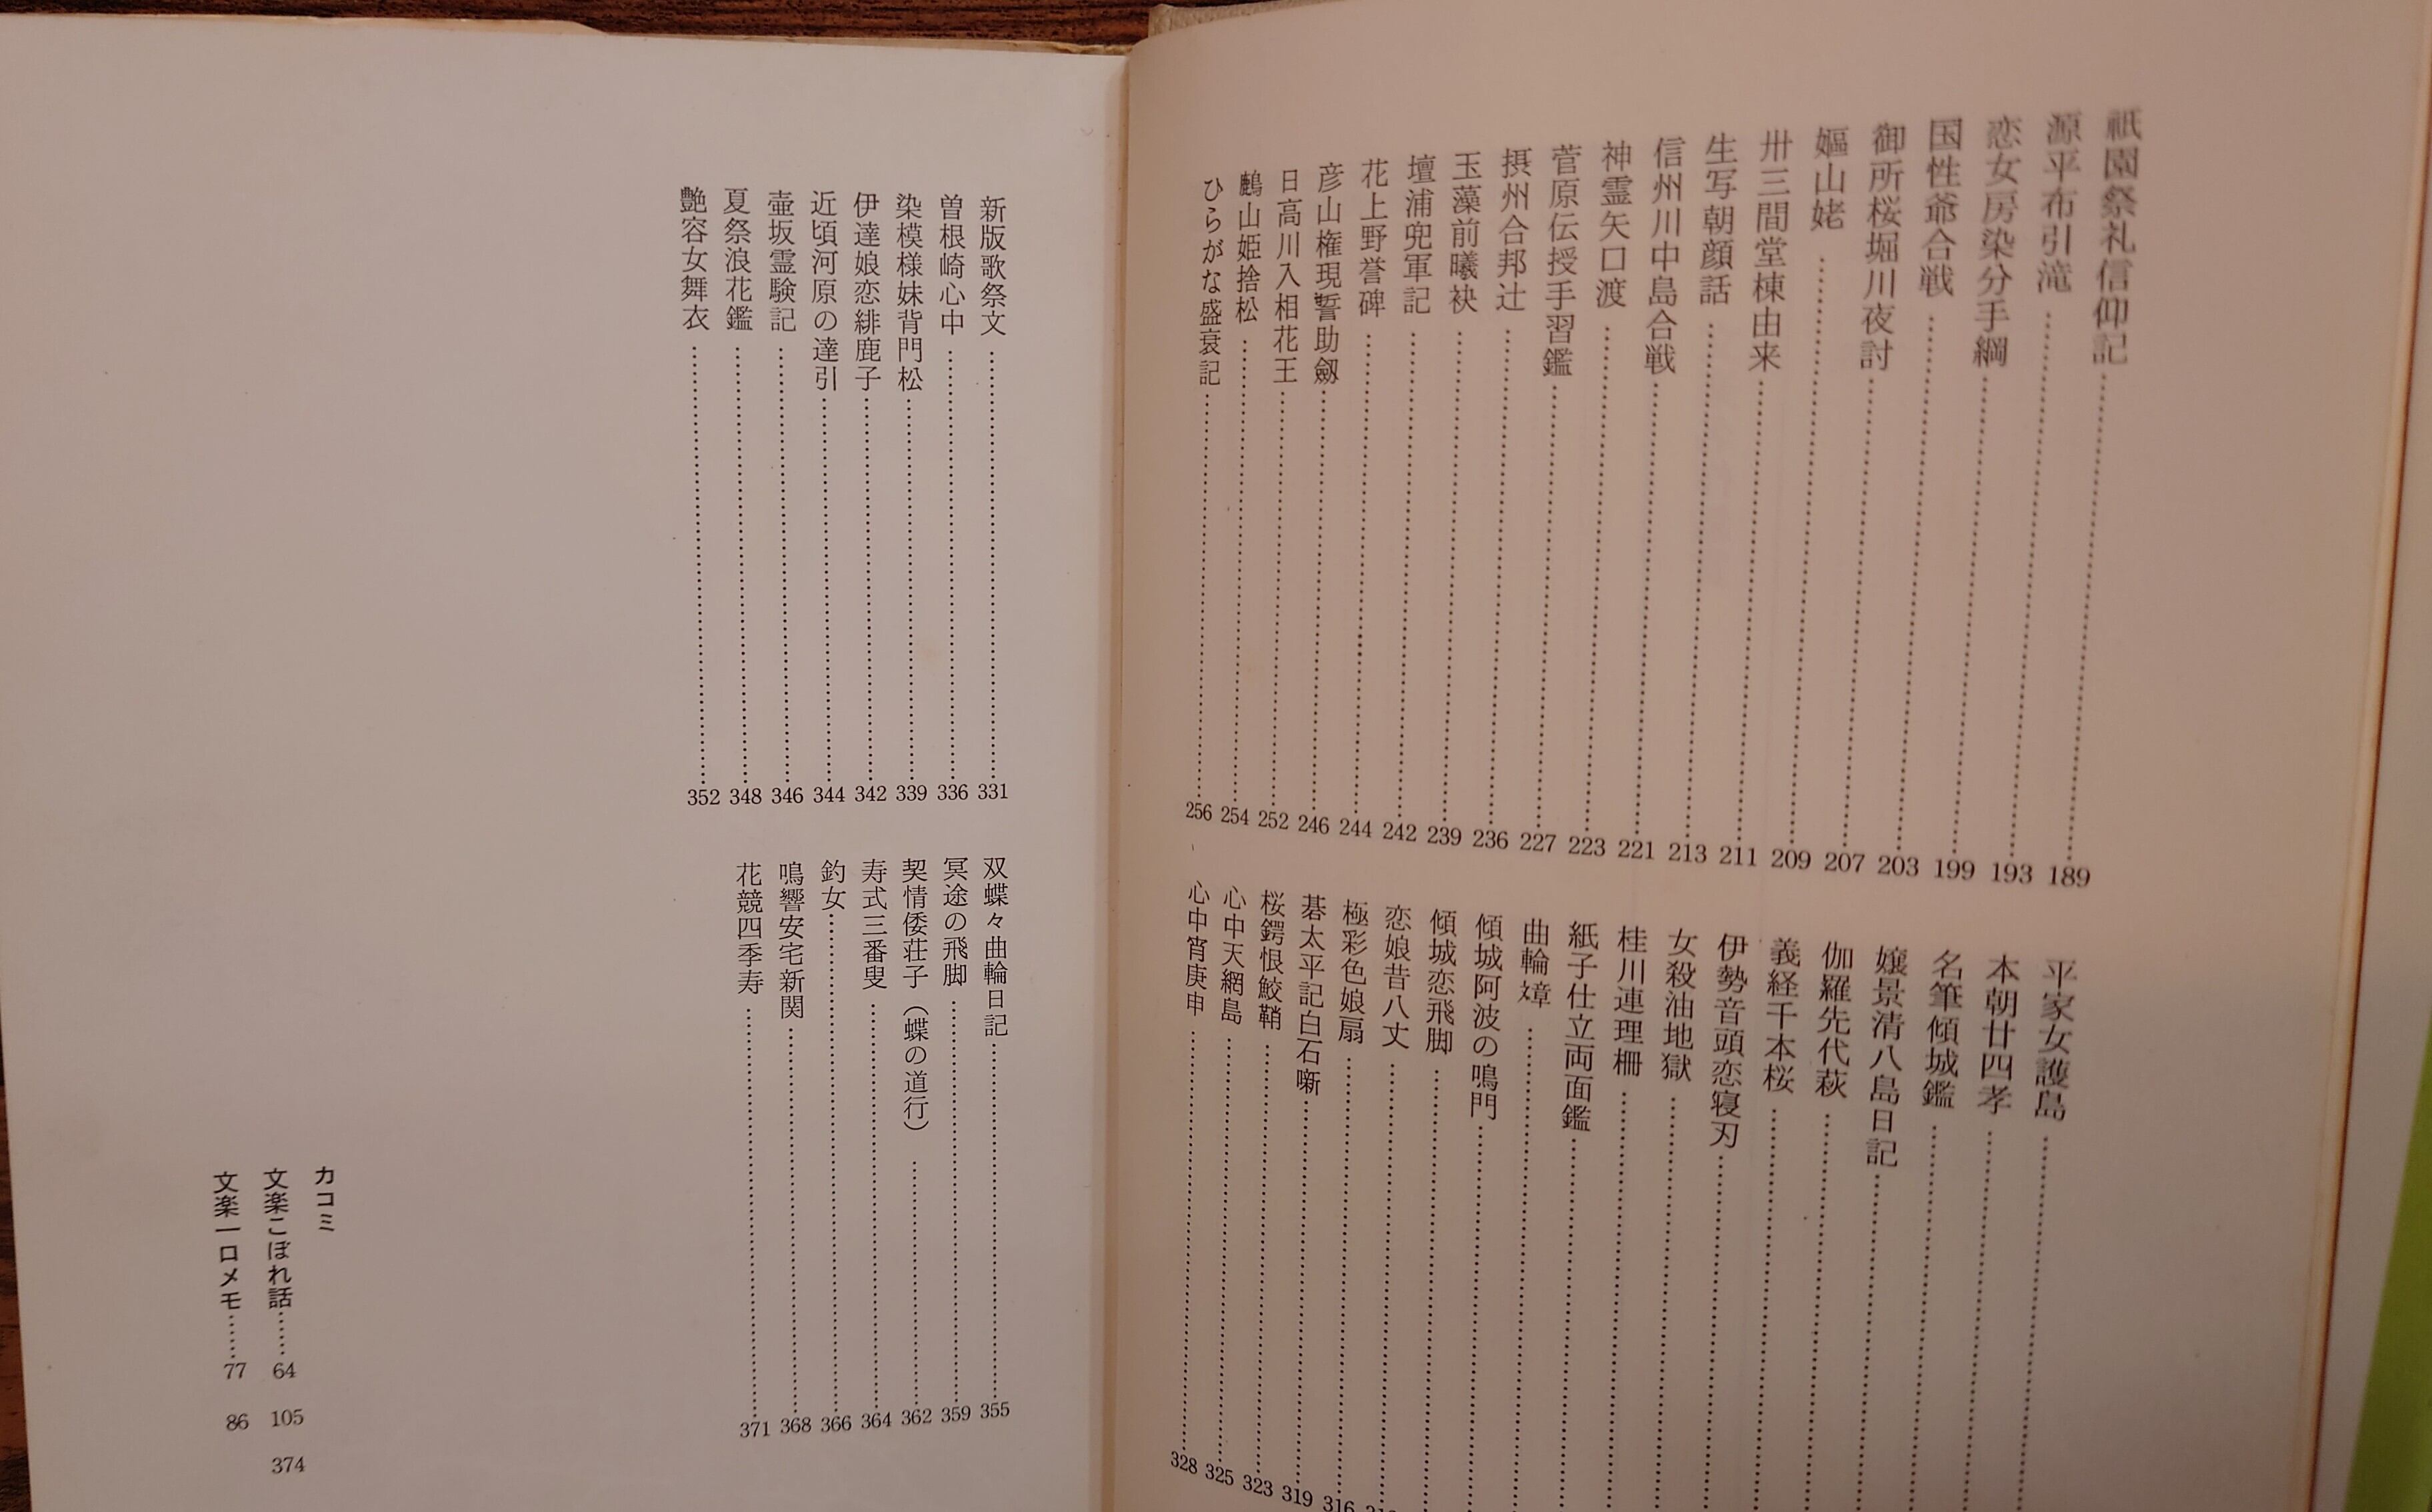 祇園祭礼信仰記……189
源平布引滝……193
恋女房染分手綱……199
国性爺合戦……203
御所桜堀川夜討……207
嫗山姥……209
卅三間堂棟由来……211
生写朝顔話……213
信州川中島合戦……221
神霊矢口渡……223
菅原伝授手習鑑……227
摂州合邦辻……236
玉藻前曦袂……239
壇浦兜軍記……242
花上野誉碑……244
彦山権現誓助劔……246
日高川入相花王……252
鶊山姫捨松……254
ひらがな盛衰記……256
平家女護島……
本朝廿四孝……
名筆傾城鑑……
嬢景清八島日記……
伽羅先代萩……
義経千本桜……
伊勢音頭恋寝刃……
女殺油地獄……
桂川連理柵……
紙子仕立両面鑑……
曲輪𤦭……
傾城阿波の鳴門……
傾城恋飛脚……
恋娘昔八丈……
極彩色娘扇……316
碁太平記白石噺……319
桜鍔恨鮫鞘……323
心中天網島……325
心中宵庚申……328
新版歌祭文……331
曽根崎心中……336
染模様妹背門松……339
伊達娘恋緋鹿子……342
近頃河原の達引……344
壷坂霊験記……346
夏祭浪花鑑……348
艶容女舞衣……352
双蝶々曲輪日記……355
冥途の飛脚……359
契情倭荘子（蝶の道行）……362
寿式三番叟……364
釣女……366
鳴響安宅新関……368
花競四季寿……371
カコミ
文楽こぼれ話……64 105 374
文楽一口メモ……77 86